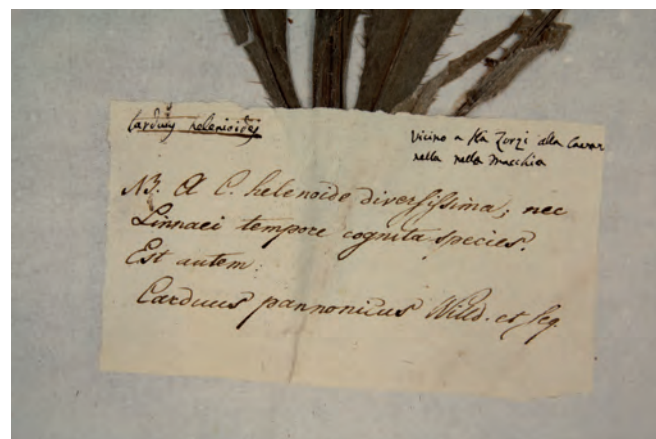 Carduus helenioides
Vicino a Sta Zorzi alla Caver
nella nella Macchia
NB. A C. helenoide diversissima; nec
Linnaei tempore cognita species.
Est autem:
Carduus pannonicus Willd. et seq.